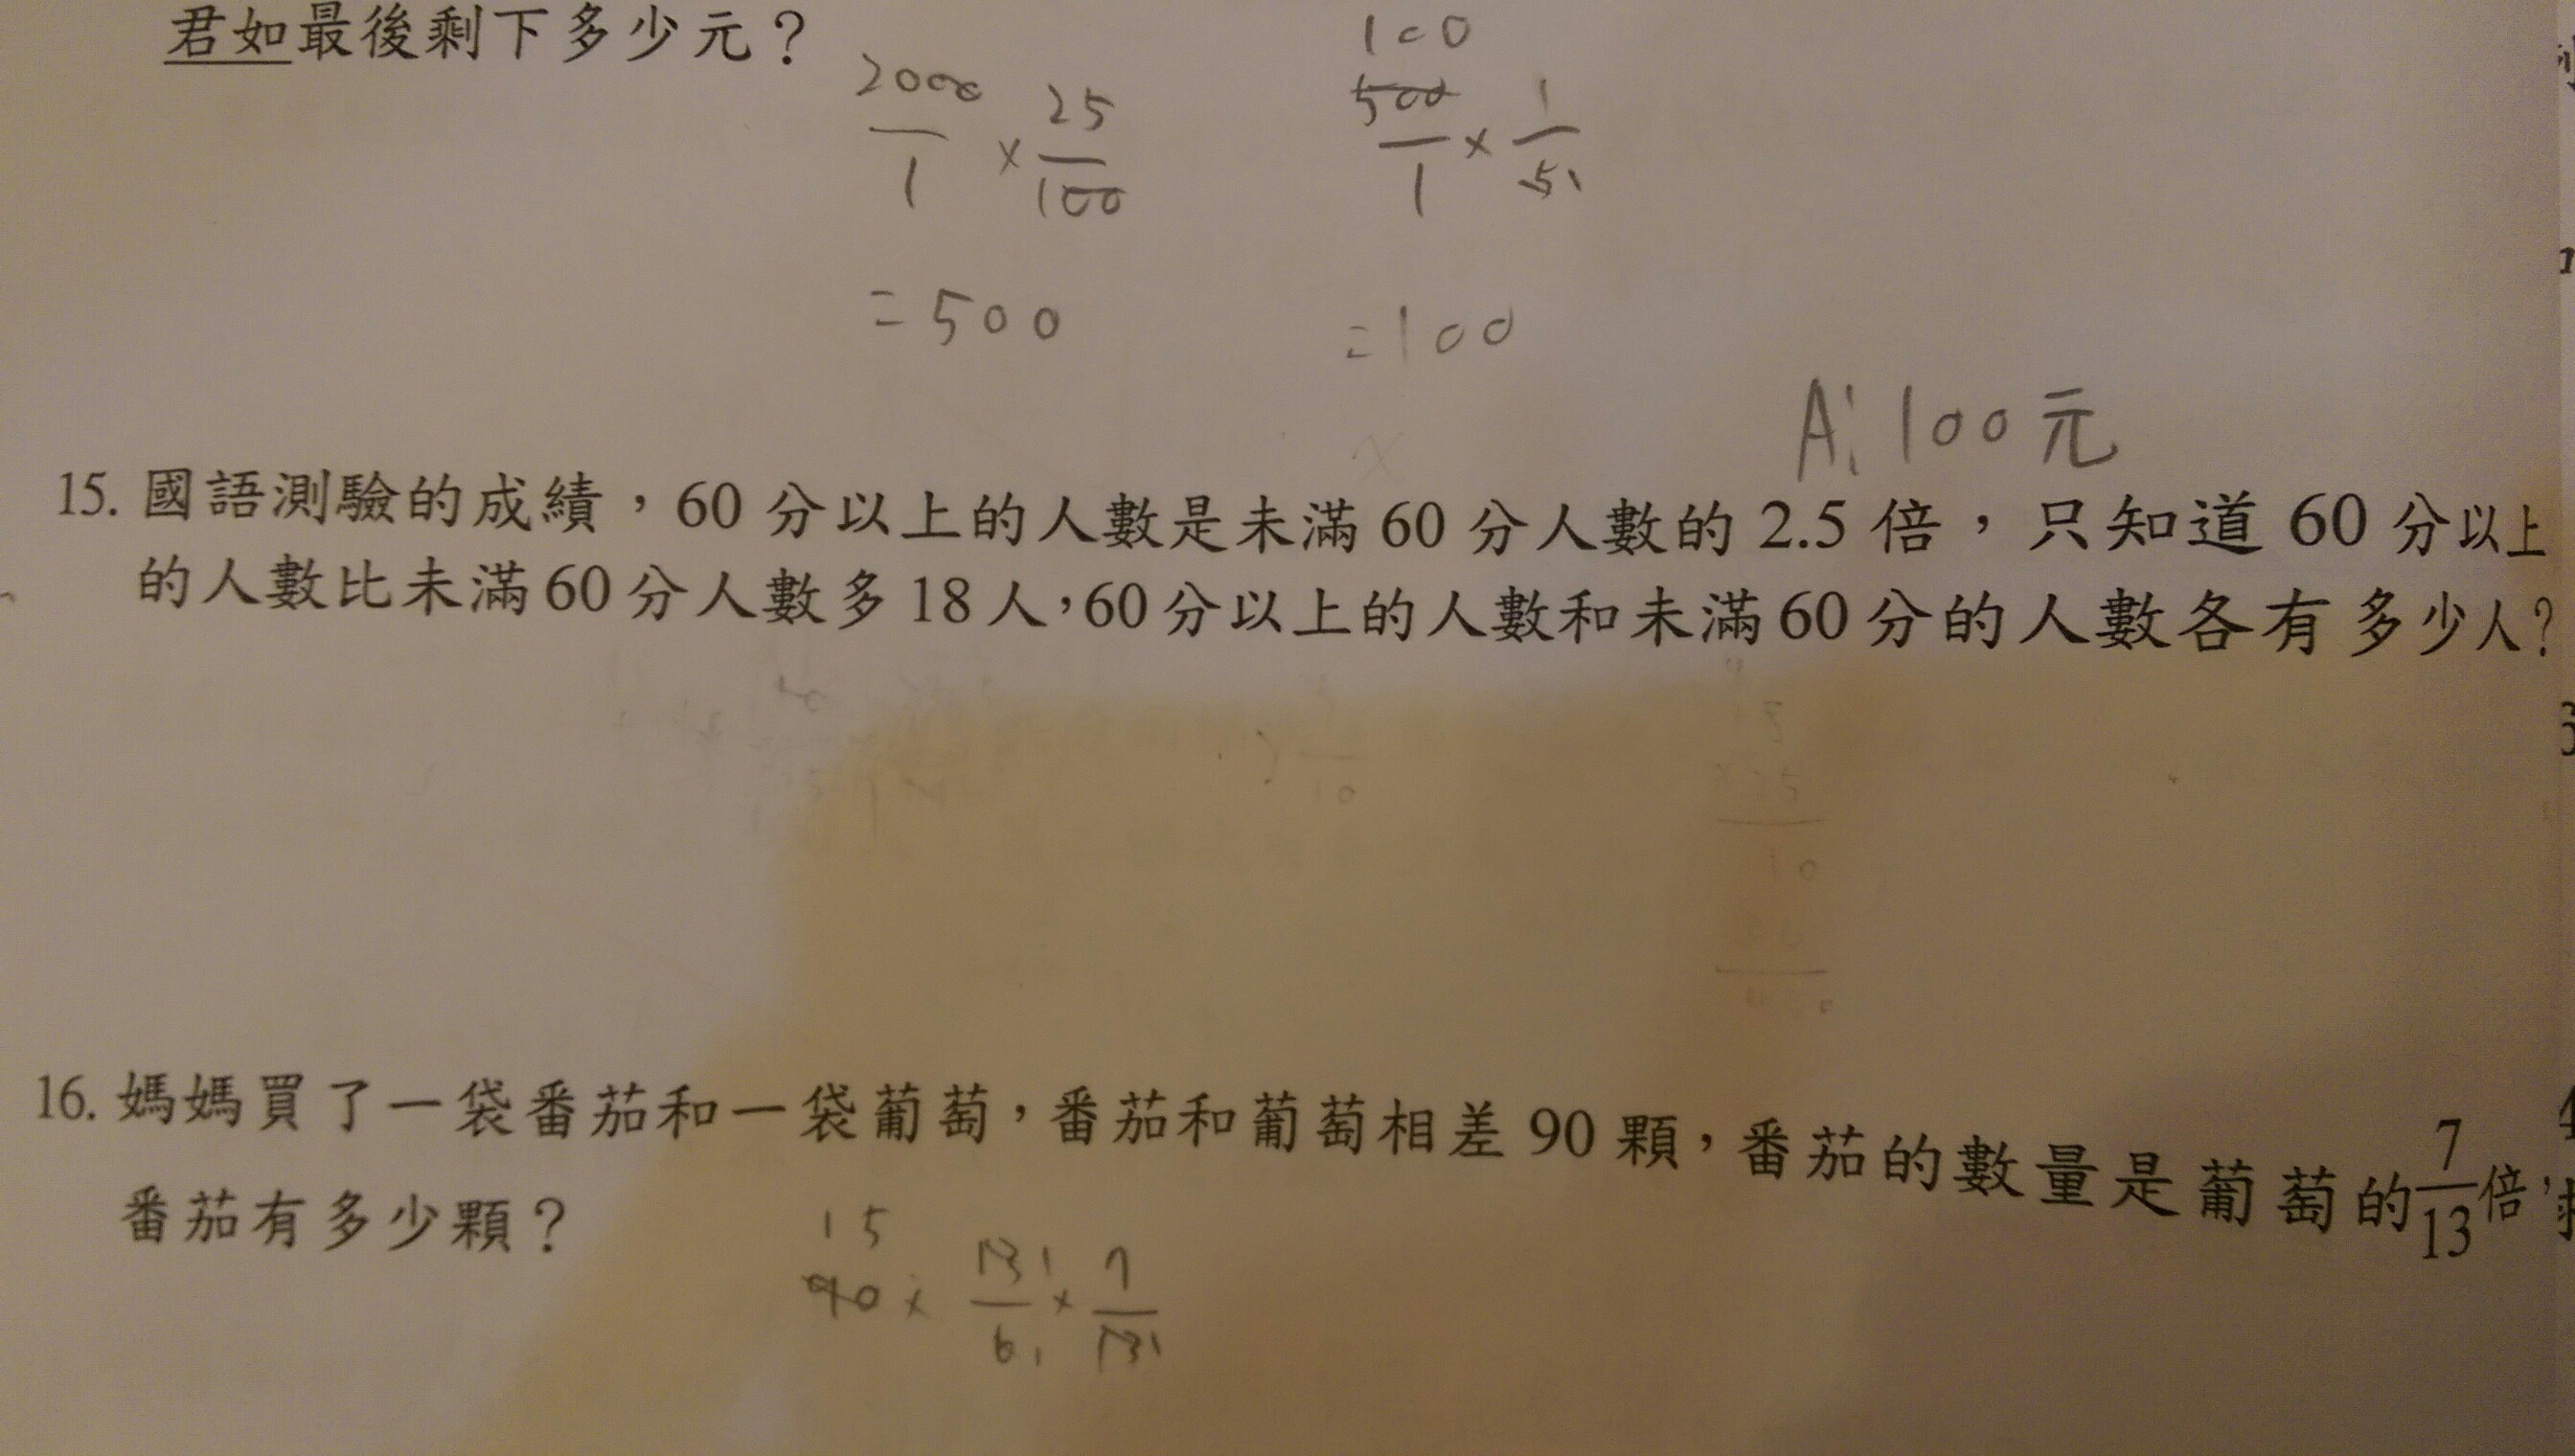 君如最後剩下多少元？
100
2000/1 × 25/100 500/1 × 1/5 1
= 500 = 100
A: 100元
15. 國語測驗的成績，60 分以上的人數是未滿 60 分人數的 2.5 倍，只知道 60 分以上
的人數比未滿 60 分人數多 18 人，60 分以上的人數和未滿 60 分的人數各有多少人？
16. 媽媽買了一袋番茄和一袋葡萄，番茄和葡萄相差 90 顆，番茄的數量是葡萄的 7/13 倍，
番茄有多少顆？
15
90 × 13 1/6 1 × 7/13 1